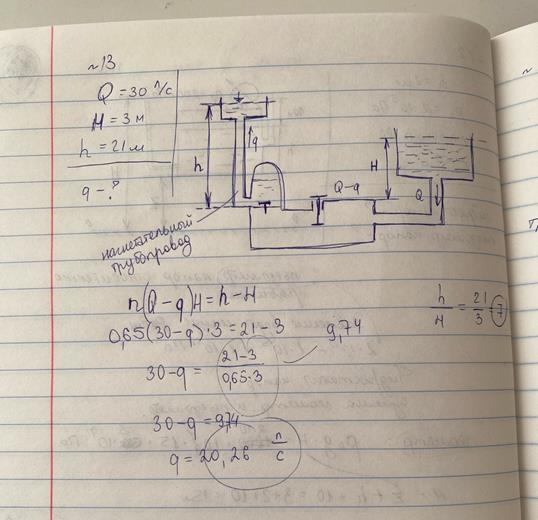 ~13
Q = 30 л/с
H = 3 м
h = 21 м
q - ?
h
q
H
Q
Q-q
нагнетательный
трубопровод
n(Q-q)H = h-H
0,65(30-q)·3 = 21-3
9,74
30-q = 21-3 / 0,65·3
30-q = 9,74
q = 20,26 л/с
h/H = 21/3 = 7